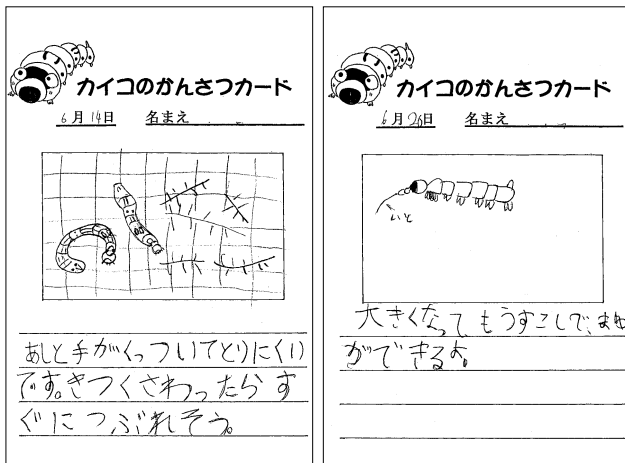 カイコのかんさつカード
6月14日 名まえ
あしと手がくっついてとりにくい
です。きつくさわったらす
ぐにつぶれそう。
カイコのかんさつカード
6月26日 名まえ
いと
大きくなってもうすこしで、まゆ
ができるよ。